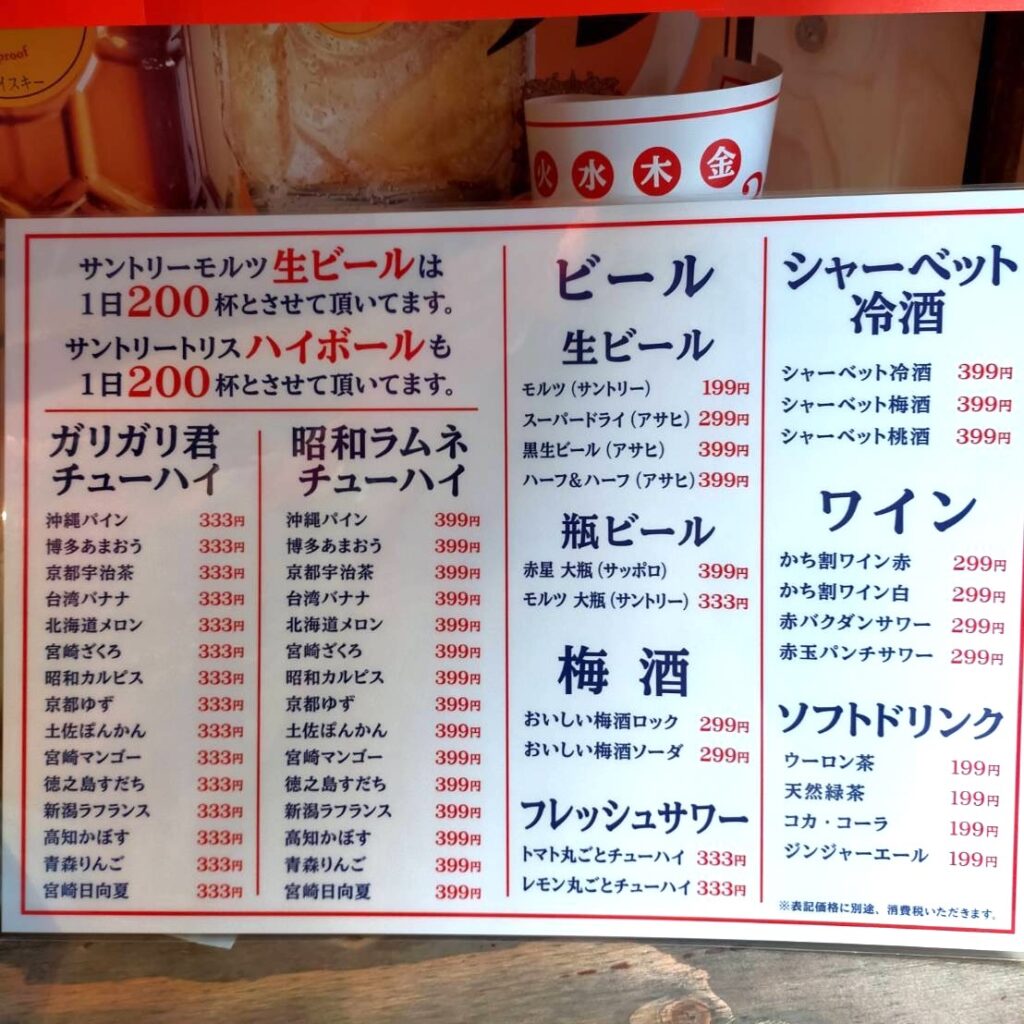 proof
イスキー
火 水 木 金
サントリーモルツ 生ビールは
1日200杯とさせて頂いてます。
サントリートリス ハイボールも
1日200杯とさせて頂いてます。
ガリガリ君
チューハイ
沖縄パイン 333円
博多あまおう 333円
京都宇治茶 333円
台湾バナナ 333円
北海道メロン 333円
宮崎ざくろ 333円
昭和カルピス 333円
京都ゆず 333円
土佐ぽんかん 333円
宮崎マンゴー 333円
徳之島すだち 333円
新潟ラフランス 333円
高知かぼす 333円
青森りんご 333円
宮崎日向夏 333円
昭和ラムネ
チューハイ
沖縄パイン 399円
博多あまおう 399円
京都宇治茶 399円
台湾バナナ 399円
北海道メロン 399円
宮崎ざくろ 399円
昭和カルピス 399円
京都ゆず 399円
土佐ぽんかん 399円
宮崎マンゴー 399円
徳之島すだち 399円
新潟ラフランス 399円
高知かぼす 399円
青森りんご 399円
宮崎日向夏 399円
ビール
生ビール
モルツ（サントリー） 199円
スーパードライ（アサヒ） 299円
黒生ビール（アサヒ） 399円
ハーフ&ハーフ（アサヒ） 399円
瓶ビール
赤星 大瓶（サッポロ） 399円
モルツ 大瓶（サントリー） 333円
梅酒
おいしい梅酒ロック 299円
おいしい梅酒ソーダ 299円
フレッシュサワー
トマト丸ごとチューハイ 333円
レモン丸ごとチューハイ 333円
シャーベット
冷酒
シャーベット冷酒 399円
シャーベット梅酒 399円
シャーベット桃酒 399円
ワイン
かち割ワイン赤 299円
かち割ワイン白 299円
赤バクダンサワー 299円
赤玉パンチサワー 299円
ソフトドリンク
ウーロン茶 199円
天然緑茶 199円
コカ・コーラ 199円
ジンジャーエール 199円
※表記価格に別途、消費税いただきます。